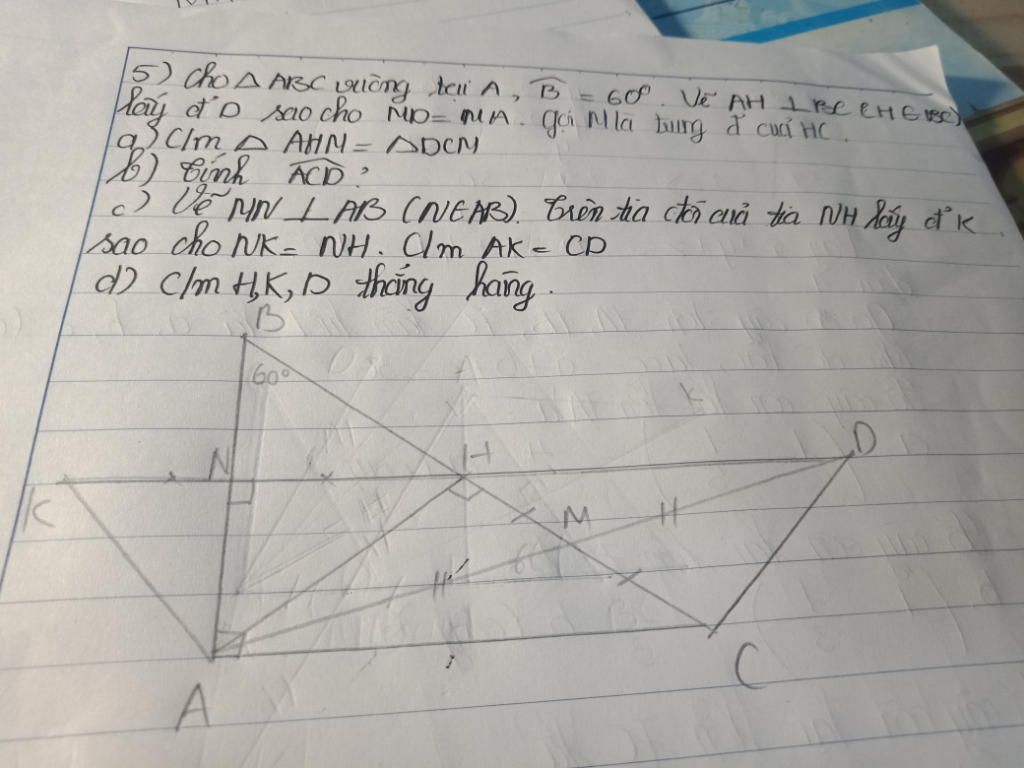 5) Cho △ ABC vuông tại A, B̂ = 60°. Vẽ AH ⊥ BC (H ∈ BC)
lấy đ' D sao cho MD = MA. Gọi M là trung đ' của HC.
a) C/m △ AHM = △DCM
b) Tính ACD?
c) Vẽ MN ⊥ AB (N∈AB). Trên tia đối của tia NH lấy đ' K
sao cho NK = NH. C/m AK = CD
d) C/m H,K, D thẳng hàng.
B
60°
H
D
N
K
M
A
C